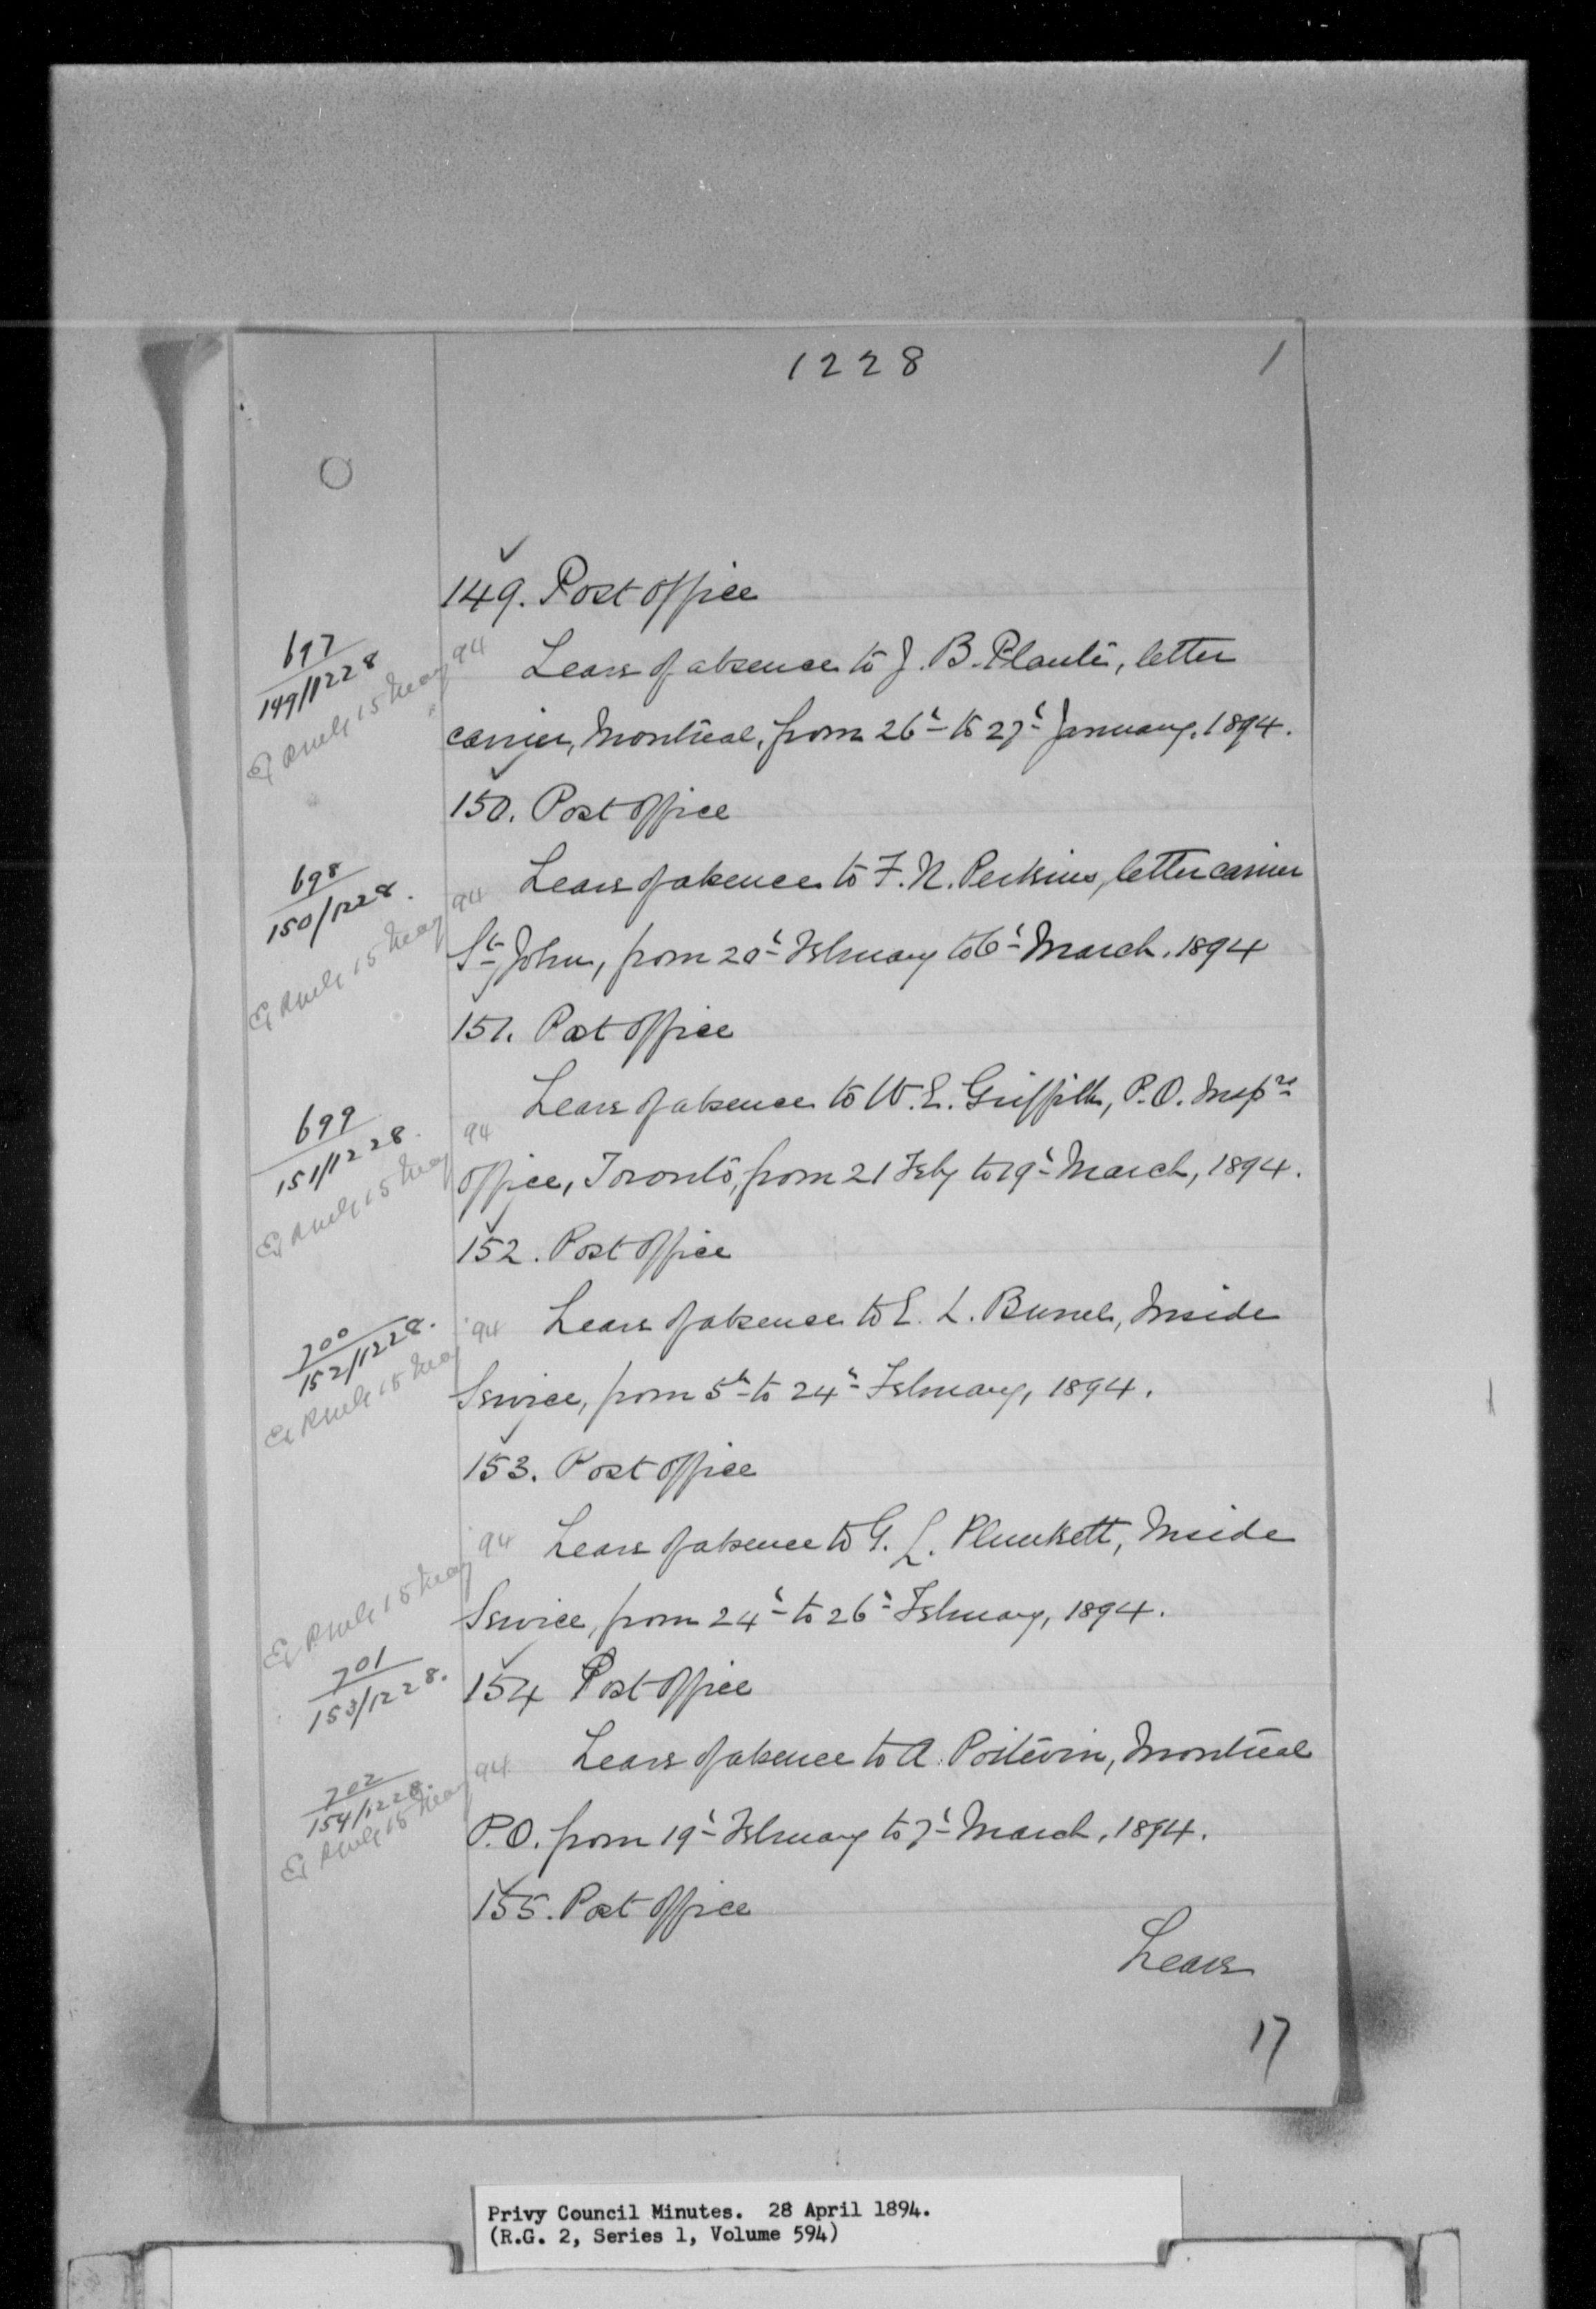 1228
1
149. Post Office
697
149/1228
94
Leave of absence to J. B. Planté, letter
carrier, Montreal, from 26th to 27th January, 1894.
150. Post Office
698
150/1228.
15 May 94
Leave of absence to F. N. Perkins, letter carrier
St John, from 20th February to 6th March, 1894
151. Post Office
699
151/1228.
15 May 94
Leave of absence to W. E. Griffith, P.O. Insprs
Office, Toronto, from 21 Feby to 19th March, 1894.
152. Post Office
700
152/1228.
15 May 94
Leave of absence to E. L. Brunel, Inside
Service, from 5th to 24th February, 1894.
153. Post Office
15 May 94
Leave of absence to G. L. Plunkett, Inside
Service, from 24th to 26th February, 1894.
701
153/1228.
154 Post Office
702
154/1228.
15 May 94
Leave of absence to A. Poitevin, Montreal
P.O. from 19th February to 7th March, 1894.
155. Post Office
Leave
17
Privy Council Minutes. 28 April 1894.
(R.G. 2, Series 1, Volume 594)